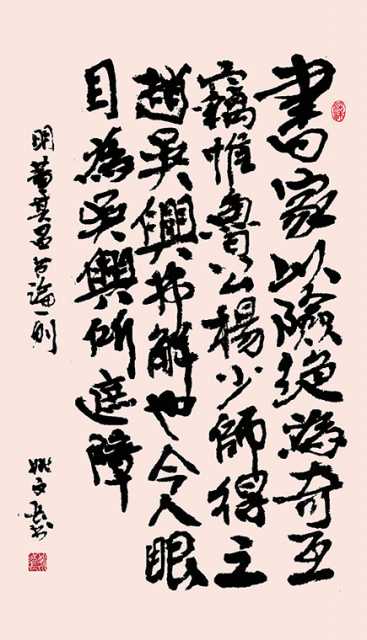 書家以險絕為奇
竊惟魯公楊少師得之
趙吳興弗解也今人眼
目為吳興所遮障
明董其昌書論一則
姚文